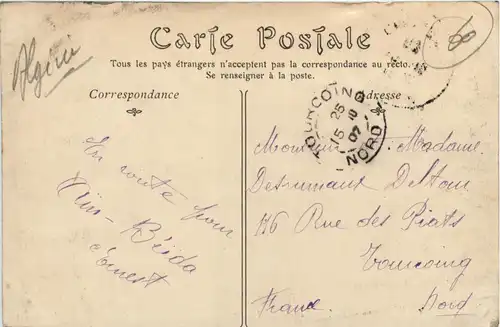 Algérie
Carte Postale
60
Tous les pays étrangers n'acceptent pas la correspondance au recto.
Se renseigner à la poste.
Correspondance
Adresse
TOURCOING
15 25
10 07
NORD
En route pour
Aïn-Béïda
Ernest
Monsieur Madame
Desrumaux Deltour
116 Rue des Piats
Tourcoing
France. Nord